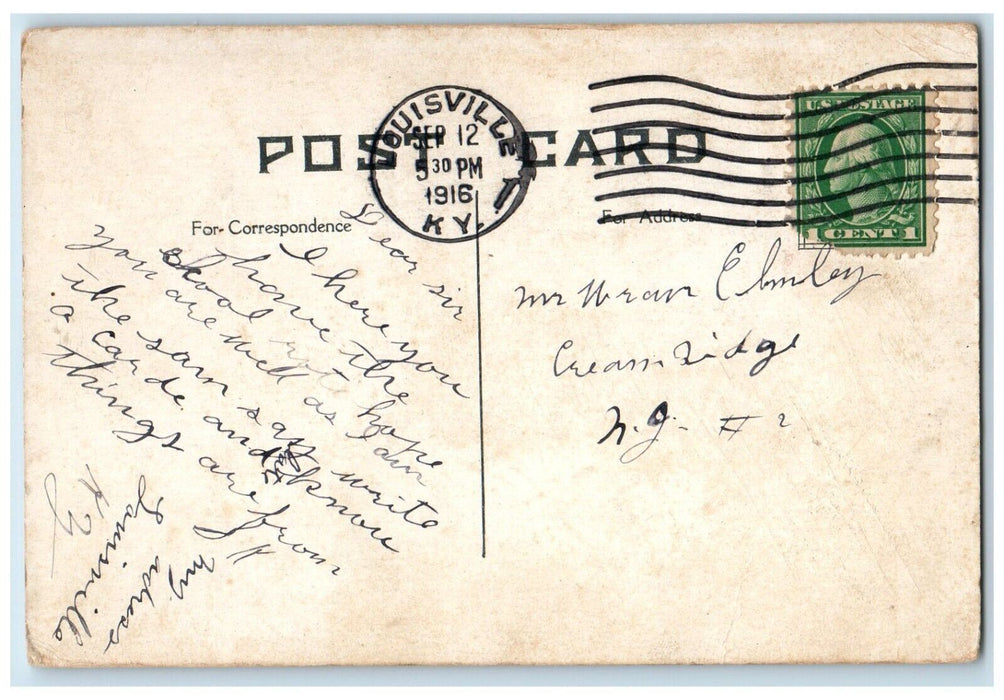 POST CARD
LOUISVILLE
SEP 12
5 30 PM
1916
KY.
U.S. POSTAGE
1 CENT 1
For Correspondence
For Address
Dear sir
I here you
have the
skool rot hope
you are well as I am
the sam say write
a carde and know
things are from
my
adress
Louisville
Ky
Mr Elmley
Cream Ridge
N.J. # 2